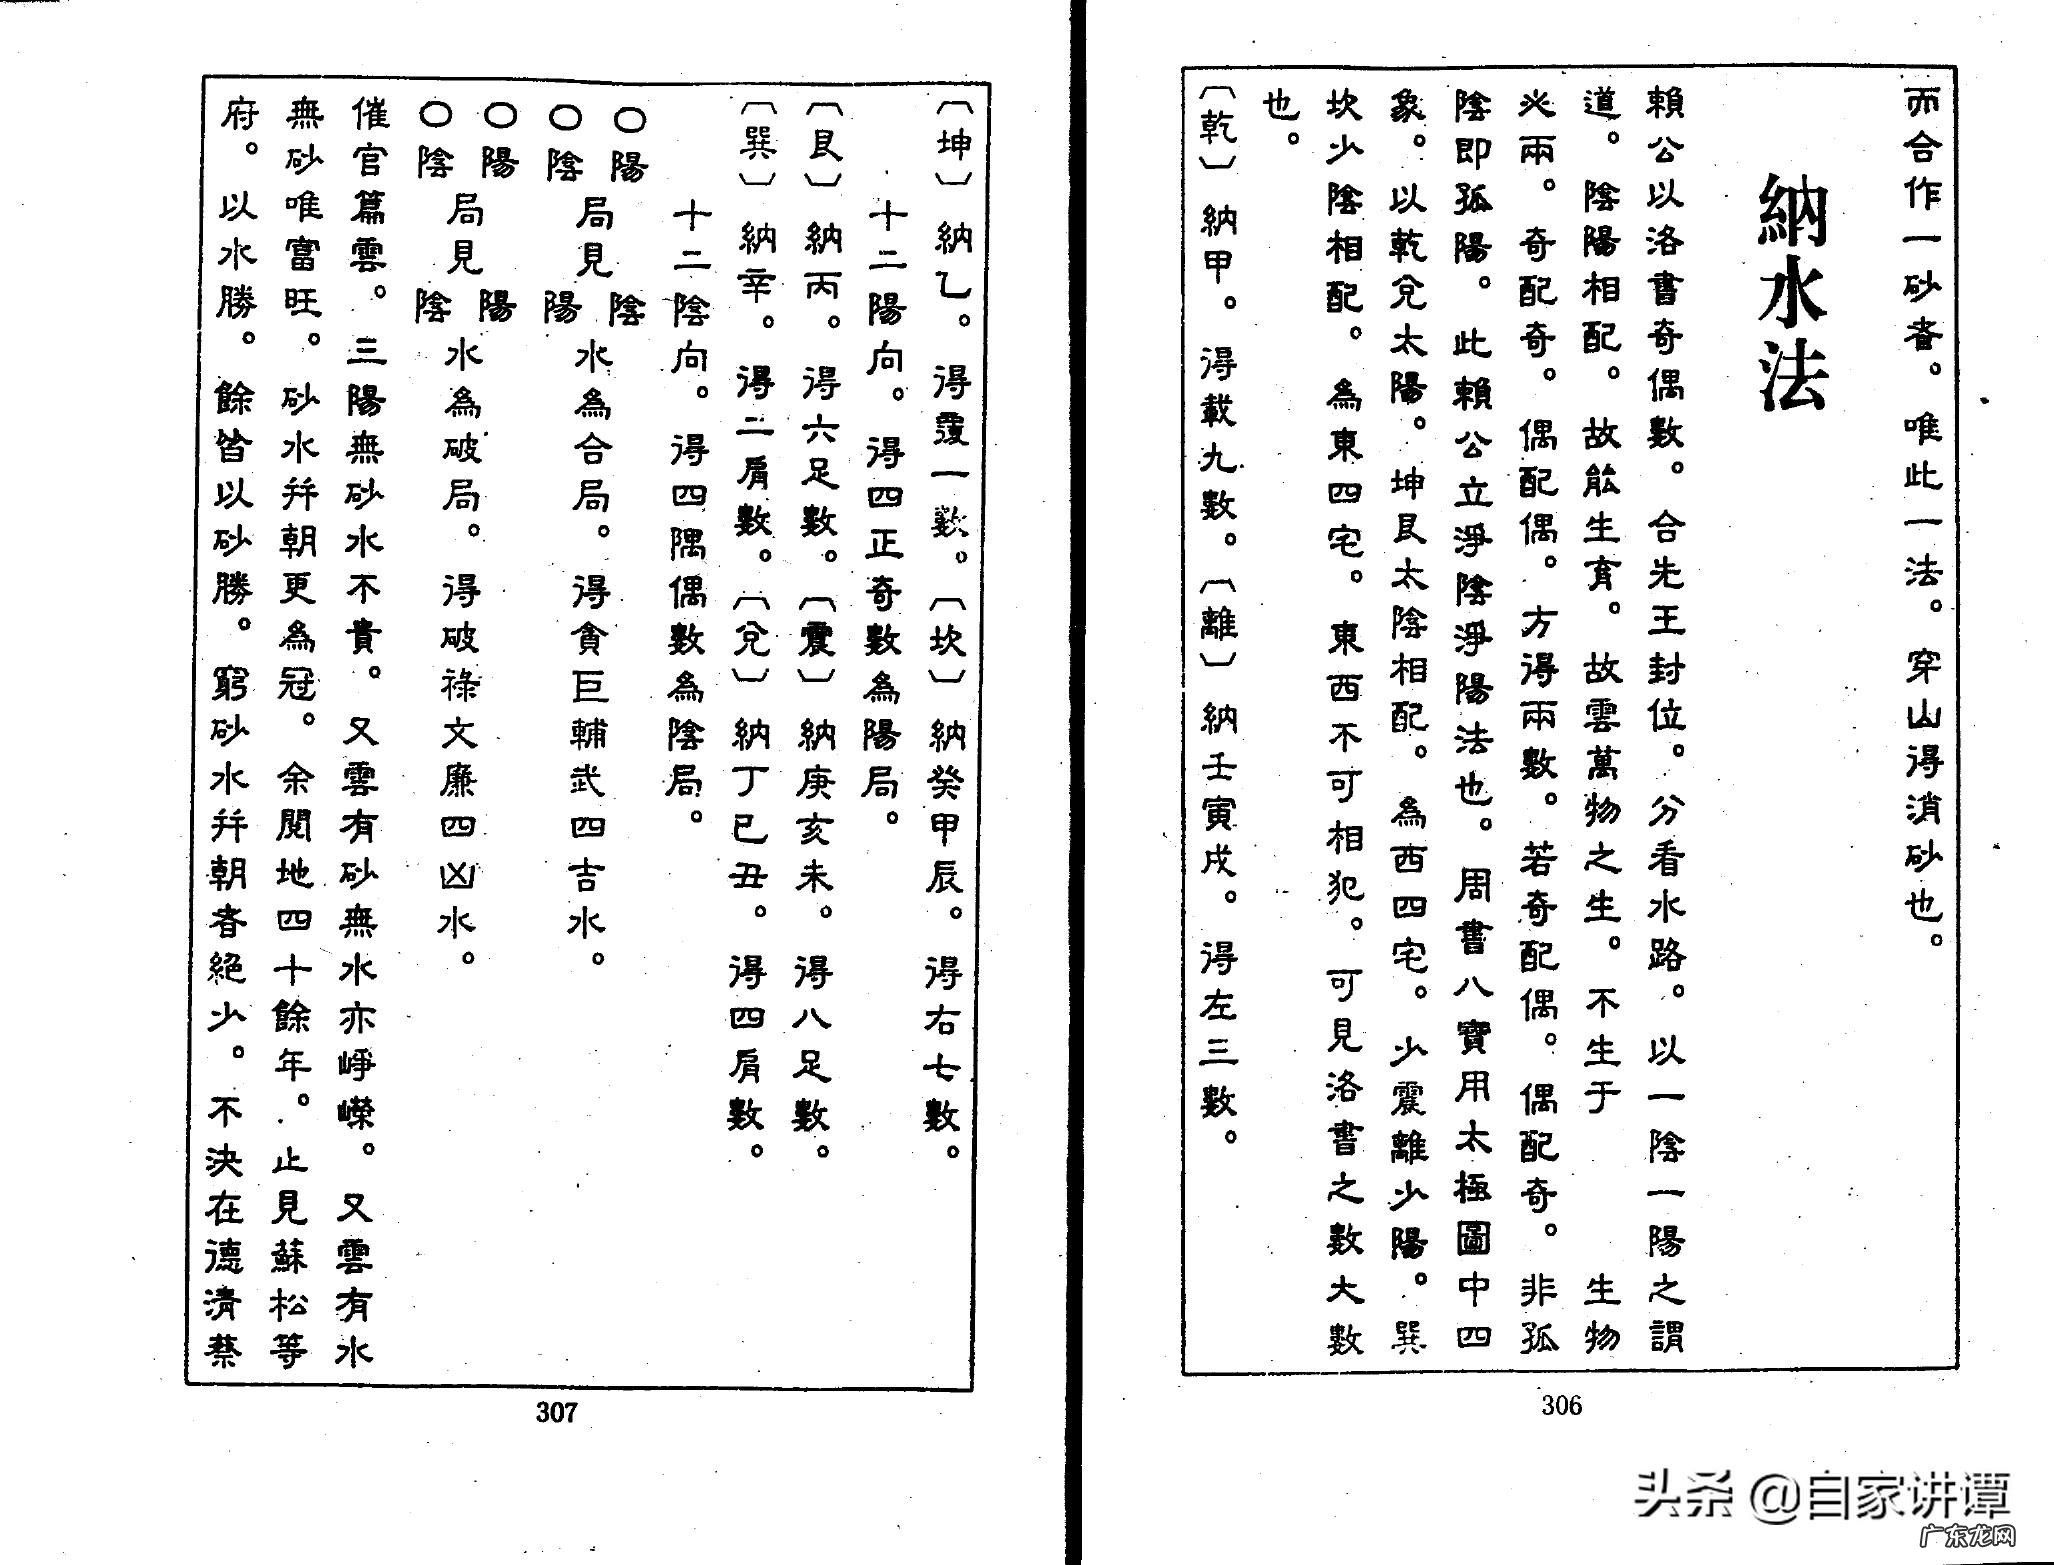 而合作一砂者。唯此一法。穿山得消砂也。
納水法
賴公以洛書奇偶數。合先王封位。分看水路。以一陰一陽之謂
道。陰陽相配。故能生育。故雲萬物之生。不生于 生物
必兩。奇配奇。偶配偶。方得兩數。若奇配偶。偶配奇。非孤
陰即孤陽。此賴公立淨陰淨陽法也。周書八寶用太極圖中四
象。以乾兌太陽。坤艮太陰相配。為西四宅。少震離少陽。巽
坎少陰相配。為東四宅。東西不可相犯。可見洛書之數大數
也。
〔乾〕納甲。得載九數。〔離〕納壬寅戌。得左三數。
306
〔坤〕納乙。得覆一數。〔坎〕納癸甲辰。得右七數。
十二陽向。得四正奇數為陽局。
〔艮〕納丙。得六足數。〔震〕納庚亥未。得八足數。
〔巽〕納辛。得二肩數。〔兌〕納丁巳丑。得四肩數。
十二陰向。得四隅偶數為陰局。
○陽 ○陰 局見 陰 陽 水為合局。得貪巨輔武四吉水。
○陽 ○陰 局見 陽 陰 水為破局。得破祿文廉四凶水。
催官篇雲。三陽無砂水不貴。又雲有砂無水亦崢嶸。又雲有水
無砂唯富旺。砂水并朝更為冠。余閱地四十餘年。止見蘇松等
府。以水勝。餘皆以砂勝。窮砂水并朝者絕少。不決在德清蔡
307
头条 @自家讲谭
广东龙网